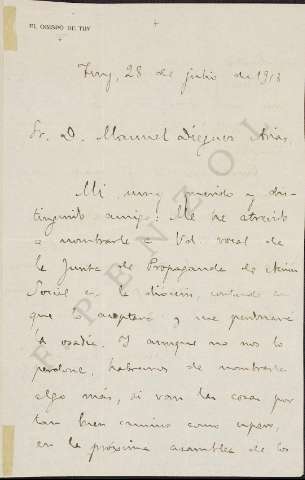 EL OBISPO DE TUY
Tuy, 28 de julio de 1913
Sr. D. Manuel Dieguez Arias
Mi muy querido y dis-
tinguido amigo: Me he atrevido
a nombrarle a Vd. vocal de
la Junta de Propaganda de Acción
Social en la diócesis, contando con
que lo aceptará y me perdonará
la osadía. Y aunque no nos lo
perdone, habremos de nombrarle
algo más, si van las cosas por
tan buen camino como espero,
en la próxima asamblea de los
PENZOL